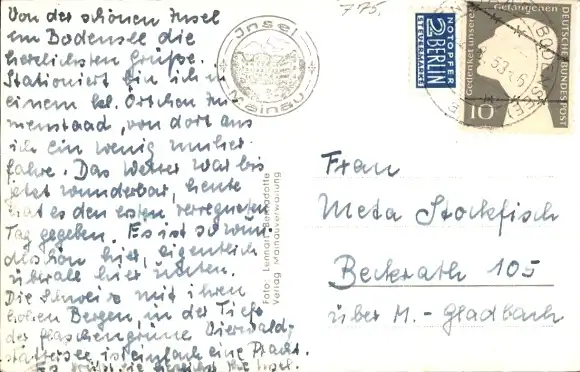 Von der schönen Insel
im Bodensee die
herzlichsten Grüße.
Stationiert bin ich in
einem kl. Örtchen Im
menstaad, von dort aus
ich ein wenig umher-
fahre. Das Wetter war bis
jetzt wunderbar, heute
hat es den ersten verregneten
Tag gegeben. Es ist so wun-
derschön hier, eigentlich
überall hier unten.
Die Schweiz mit ihren
hohen Bergen, in der Tiefe
der flaschengrüne Vierwald-
stättersee, ist einfach eine Pracht.
Es grüßt Sie herzlichst Ihre
775
Insel
Mainau
NOTOPFER
2 BERLIN
STEUERMARKE
Gedenket unserer Gefangenen
DEUTSCHE BUNDESPOST
10
(BODENSEE)
Foto: Lennart Bernadotte
Verlag Mainauverwaltung
Frau
Meta Stockfisch
Beckrath 105
über M.-Gladbach